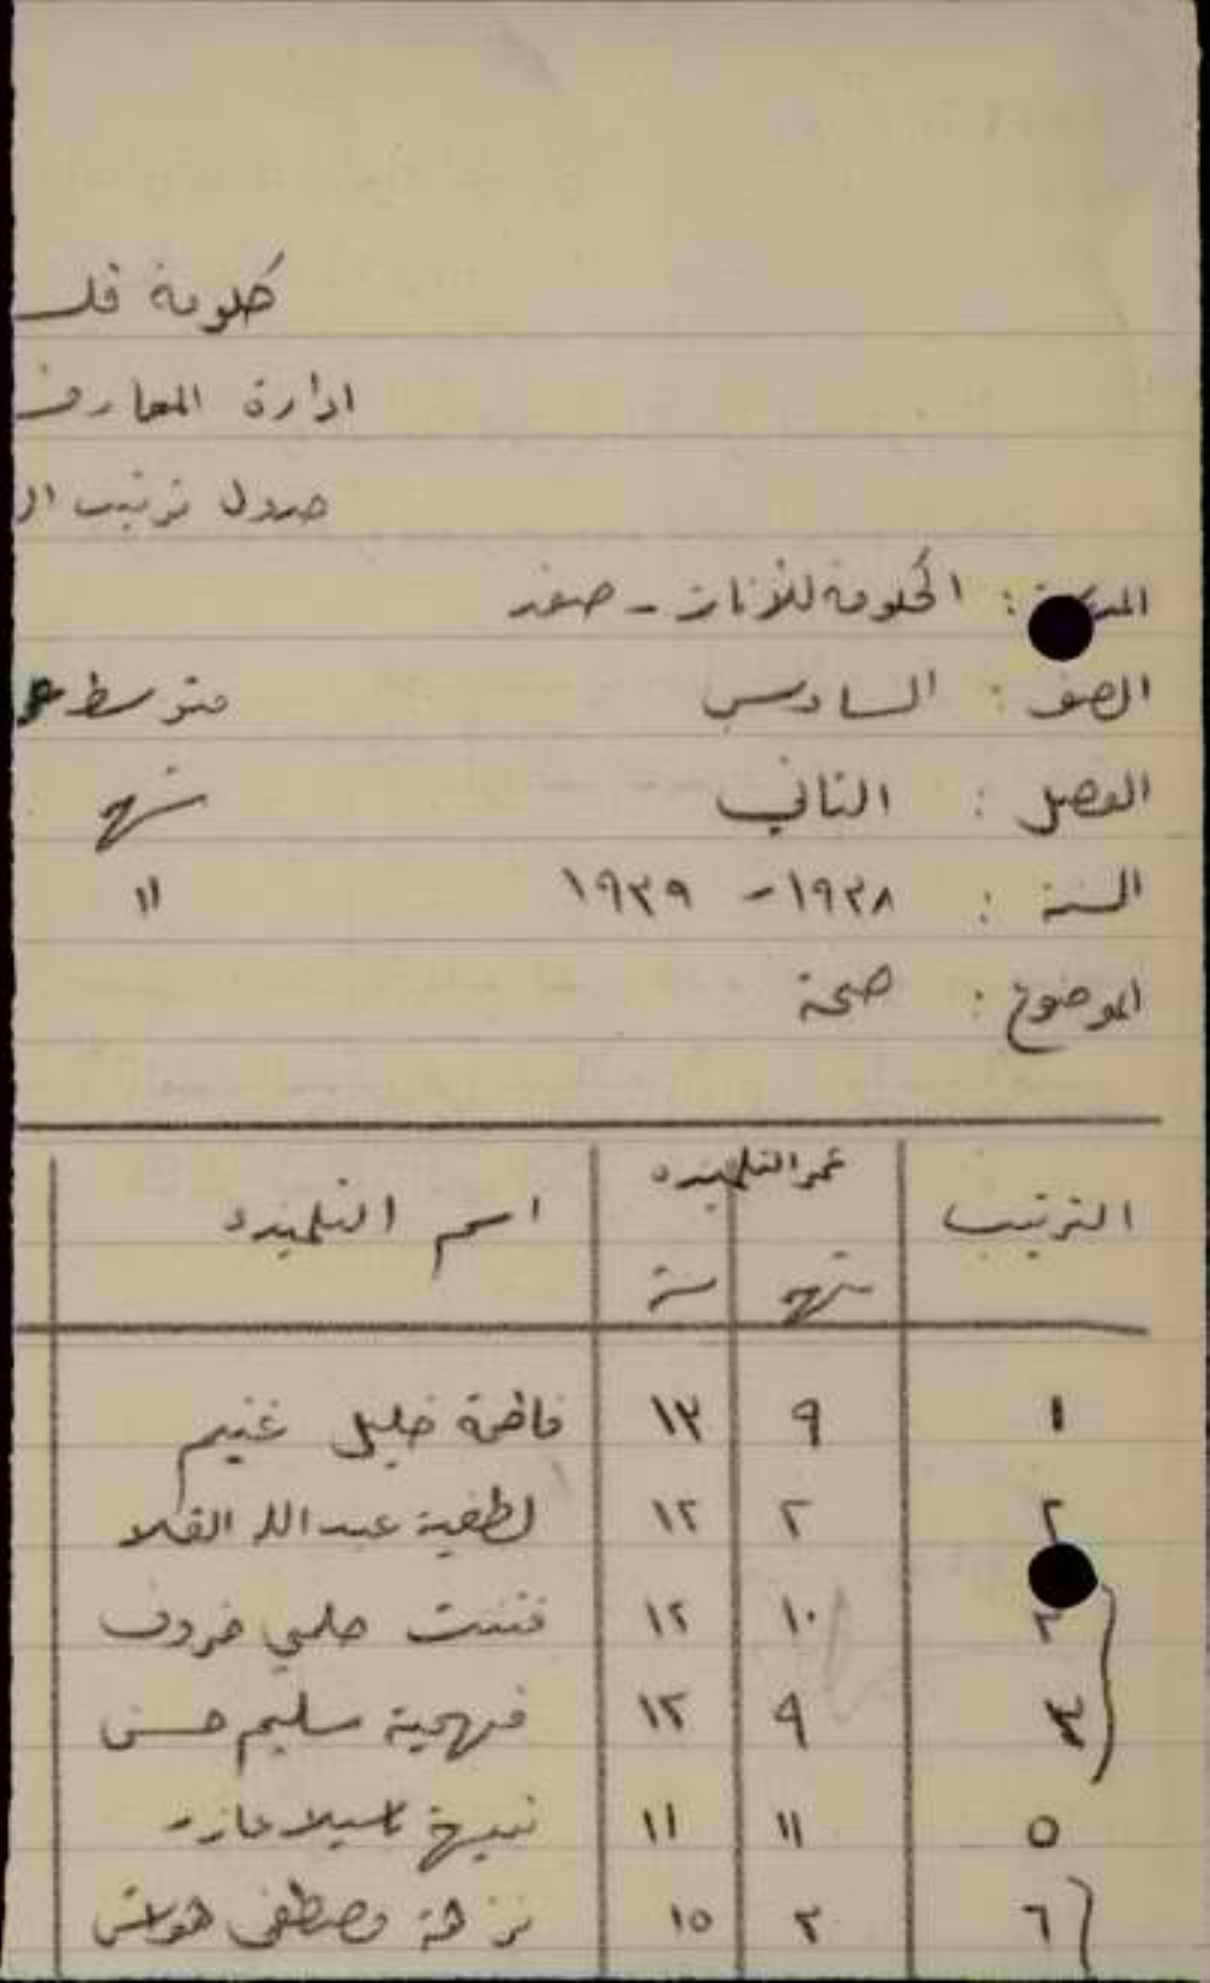 حكومة فلس
ادارة المعارف
جدول ترتيب ال
المدرسة : الحكومة للأناث - صفد
الصف : السادس متوسط ع
الفصل : الثاني شهر
السنة : ١٩٣٨ - ١٩٣٩ ١١
الموضوع : صحة
الترتيب عمر التلميذه اسم التلميذه
شهر سنة
١ ٩ ١٣ فاطمة خليل غنيم
٢ ٢ ١٢ لطفية عبد الله القلا
٣ ١٠ ١٢ حلمي خروف
٣ ٩ ١٢ فهمية سليم حسن
٥ ١١ ١١ نبيهة عازر
٦ ٢ ١٥ نزهة مصطفى هواش